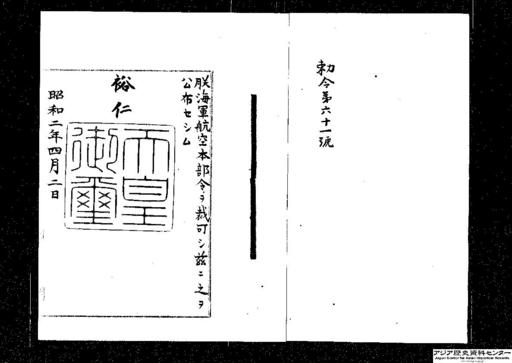 朕海軍航空本部令ヲ裁可シ茲ニ之ヲ
公布セシム
裕仁
天皇御璽
昭和二年四月二日
勅令第六十一號
アジア歴史資料センター
Japan Center for Asian Historical Records